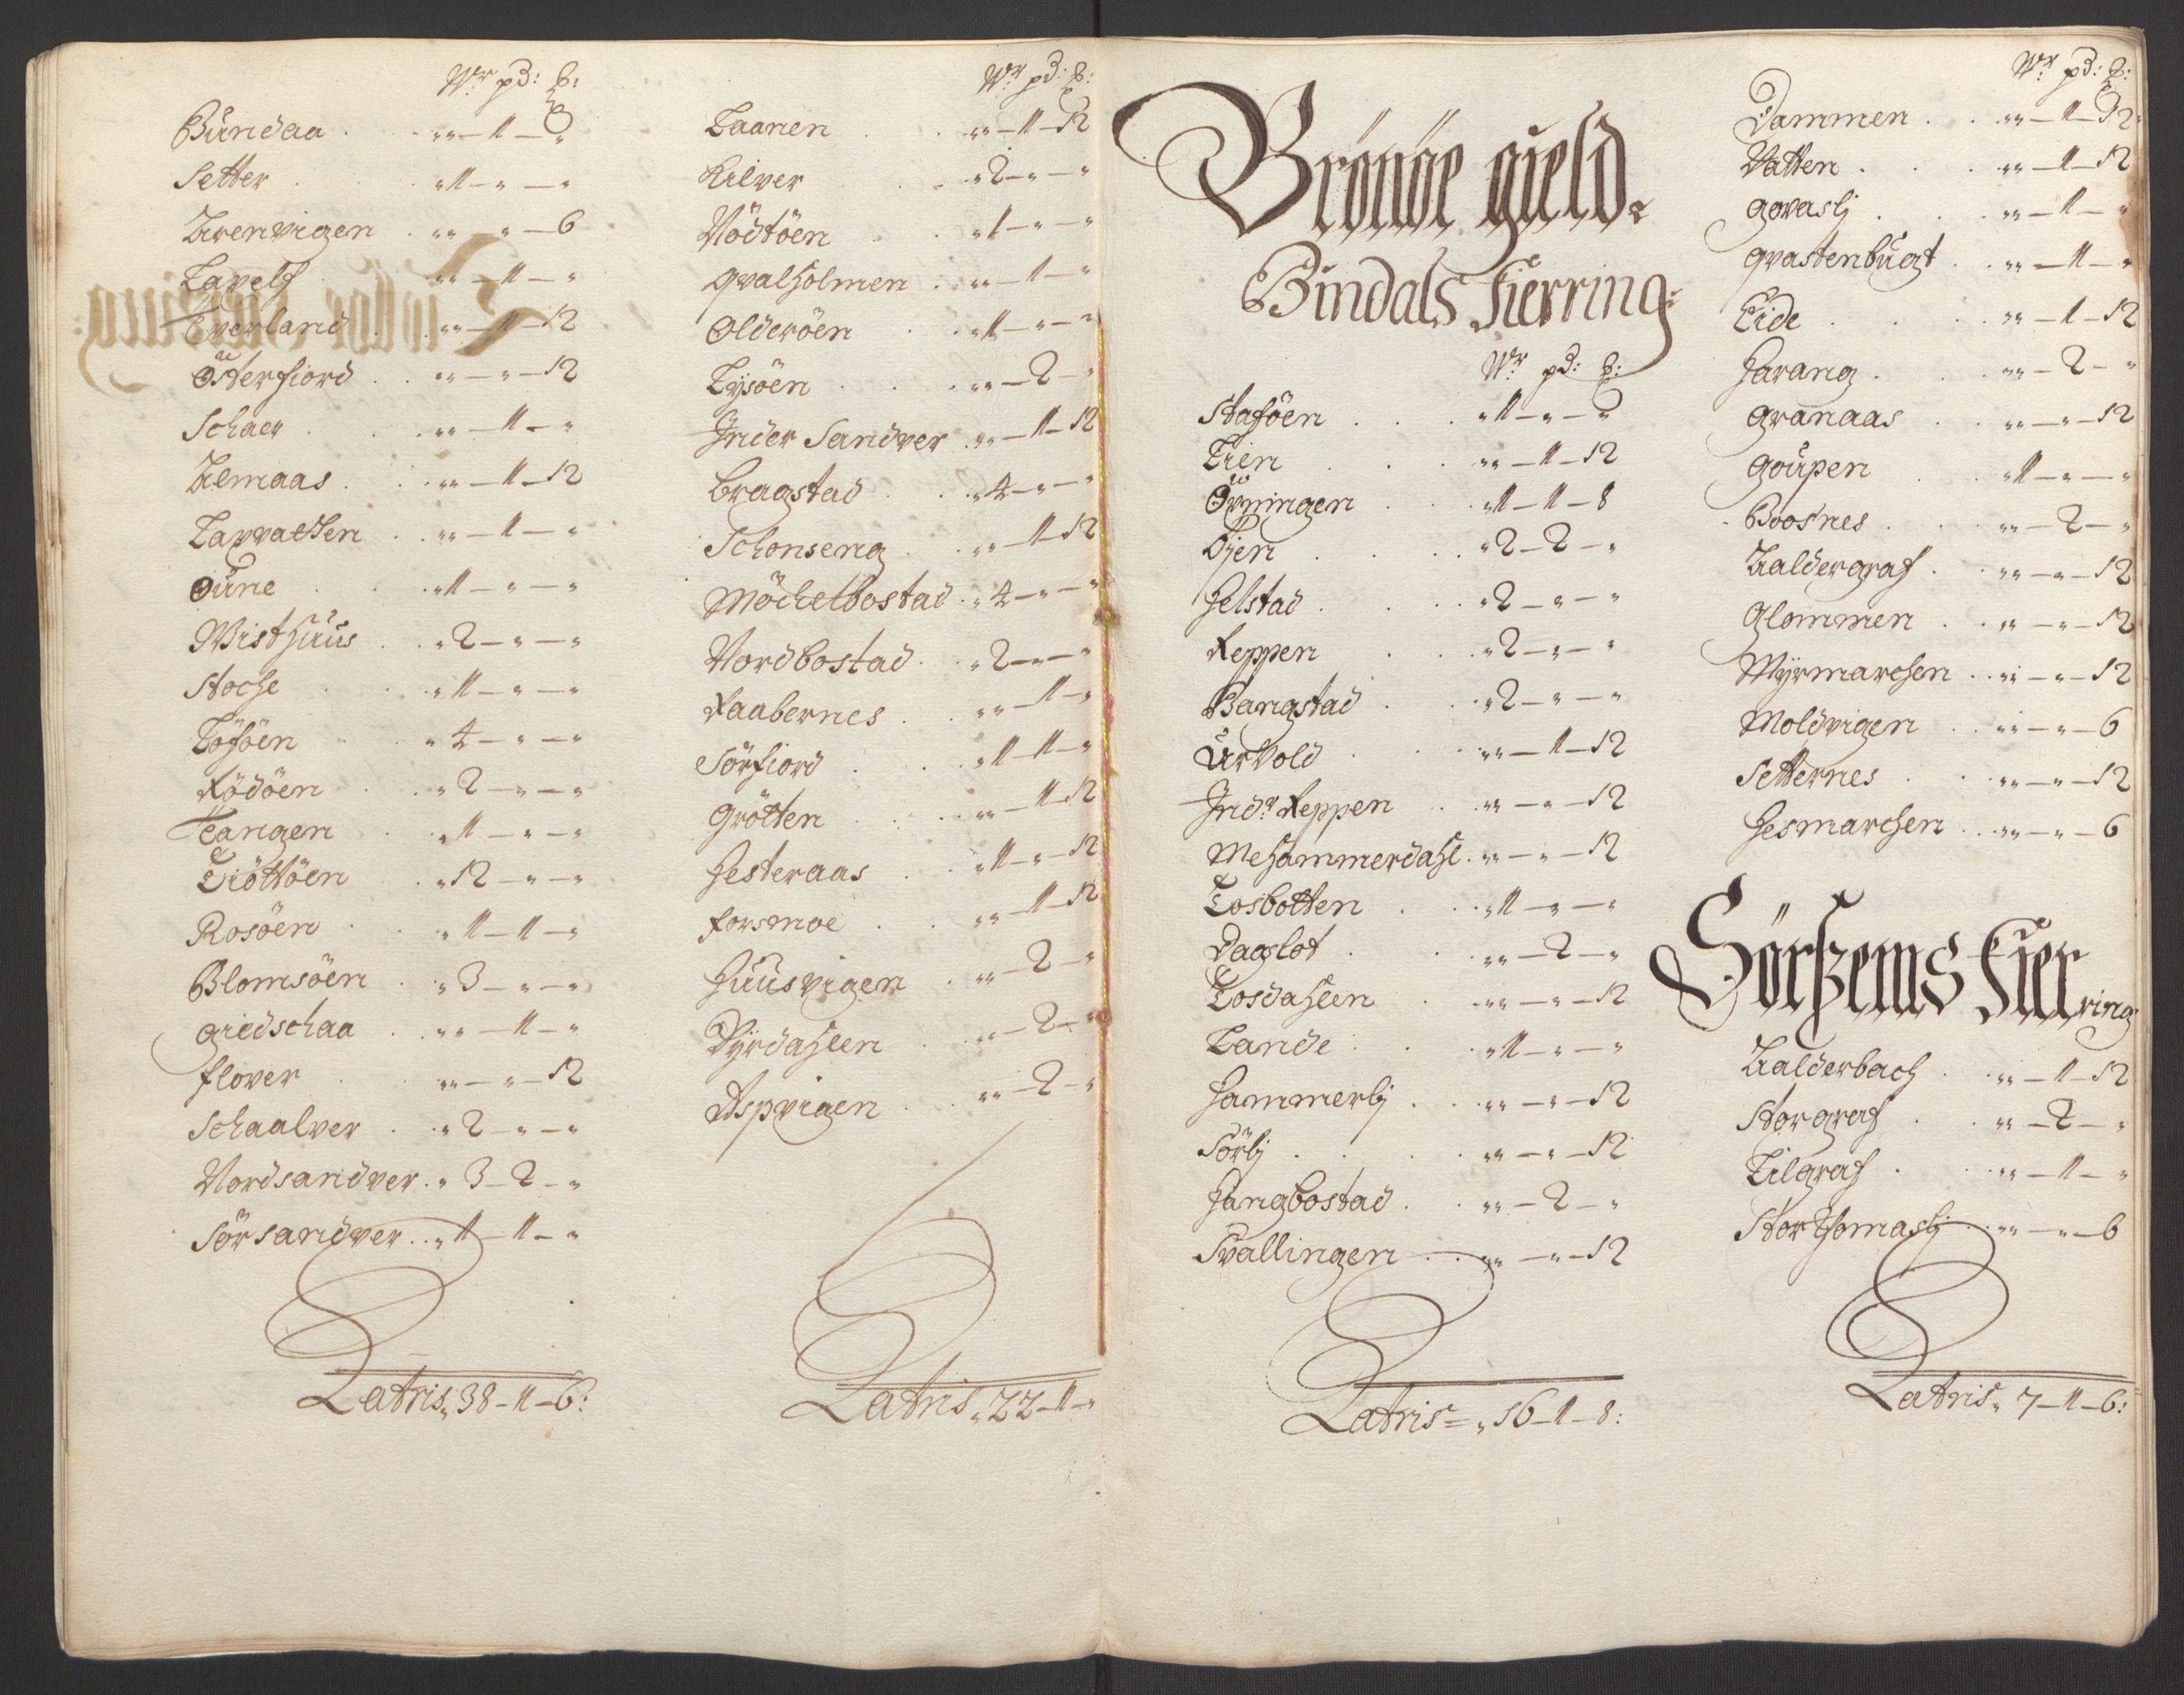 Wr pd: ß:
Bundaa . . „„ — 1 — „
Setter . . „ 1 — „ — „
Urenvigen . „„ — „ — 6
Lavelf . „„ — 1 — „
Everland . „„ — 1 — 12
Østerfiord . . „„ — „ — 12
Schaer . . „„ — 1 — „
Almaas . . „„ — 1 — 12
Larvatten . . „„ — 1 — „
Øune . . „ 1 — „ — „
Wisthuus . . „ 2 — „ — „
Stoche . . „ 1 — „ — „
Löföen . „ 4 — „ — „
Rödöen . „ 2 — „ — „
Tangen . „ 1 — „ — „
Tiöttöen . „ 12 — „ — „
Rosöen . „ 1 — 1 — „
Blomsöen . „ 3 — „ — „
Giedschaa . „„ — 1 — „
Flover . „„ — „ — 12
Schaalver . . „ 2 — „ — „
Nordsandver . „ 3 — 2 — „
Sörsandver . . „ 1 — 1 — „
Latris „ 38 — 1 — 6:
Wr pd: ß:
Laanen . . „„ — 1 — 12
Kilver . . „ 2 — „ — „
Nödtöen . . „ 1 — „ — „
Qvalholmen . „„ — 1 — „
Olderöen . „ 1 — „ — „
Lysöen . . „„ — 2 — „
Inder Sandver . „„ — 1 — 12
Bragstad . . „ 4 — „ — „
Schonseng . „„ — 1 — 12
Möchelbostad . „ 4 — „ — „
Nordbostad . „ 2 — „ — „
Raabernes . . „„ — 1 — „
Sörfiord . . „ 1 — 1 — „
Grötten . . „„ — 1 — 12
Hesteraas . . „ 1 — „ — 12
Forsmoe . . „„ — 1 — 12
Huusvigen . „„ — 2 — „
Dyrdahlen . „„ — 2 — „
Aspvigen . . „„ — 2 — „
Latris „ 22 — 1 — „
Brönöe gield.
Bindals Fierring:
Wr pd: ß:
Staföen . . „ 1 — „ — „
Lien . . „„ — 1 — 12
Øvningen . „ 1 — 1 — 8
Øjen . . „ 2 — 2 — „
Helstad . . „ 2 — „ — „
Reppen . „ 2 — „ — „
Bangstad . . „ 2 — „ — „
Urvold . . „„ — 1 — 12
Indr Reppen . „„ — „ — 12
Mehammerdahl . „„ — „ — 12
Tosbotten . . „ 1 — „ — „
Dagslot . . „„ — 2 — „
Tosdahlen . „„ — „ — 12
Lande . . „ 1 — „ — „
Hammerlj . . „„ — „ — 12
Sörlj . . „„ — „ — 12
Hangbostad . . „„ — 2 — „
Svallingen . . „„ — „ — 12
Latris = „ 16 — 1 — 8:
Wr pd: ß:
Dammen . . „„ — 1 — 12
Vatten . . „„ — 1 — 12
Govaslj . . „„ — 1 — „
Qvastenbugt . „„ — 1 — „
Eide . . „„ — 1 — 12
Harang . . „„ — 2 — „
Granaas . „„ — „ — 12
Goupen . „ 1 — „ — „
Boosnes . . „„ — 2 — „
Kaldergraf . . „„ — „ — 12
Glommen . . „„ — „ — 12
Myrmarchen . . „„ — „ — 12
Moldvigen . „„ — „ — 6
Setternes . . „„ — „ — 12
Hesmarchen . . „„ — „ — 6
Sörhems Fier
ring
Kalderbach . „„ — 1 — 12
Storgraf . „„ — 2 — „
Lilgraf . . „„ — 1 — „
Stor Thomaslj . „„ — „ — 6
Latris „ 7 — 1 — 6: